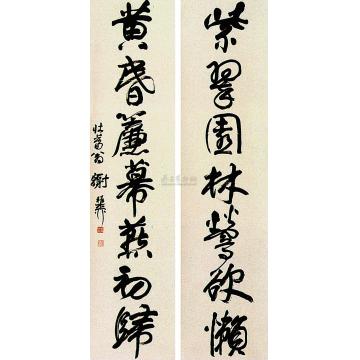 紫翠園林鶯欲懶
黄昏簾幕燕初歸
壯暮翁謝稚柳